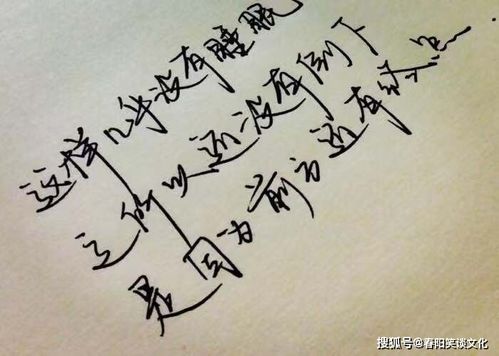 这样几乎没有睡眠
之所以还没有倒下
是因为前方还有炊烟
搜狐号@春阳笑谈文化